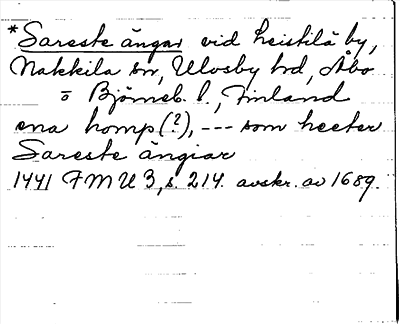 *Sareste ängar vid Leistilä by,
Nakkila sn, Ulvsby hd, Åbo
o Björneb. l., Finland
ena homp(?), --- som heeter
Sareste ängiar
1441 FMU 3, s. 214. avskr. av 1689.